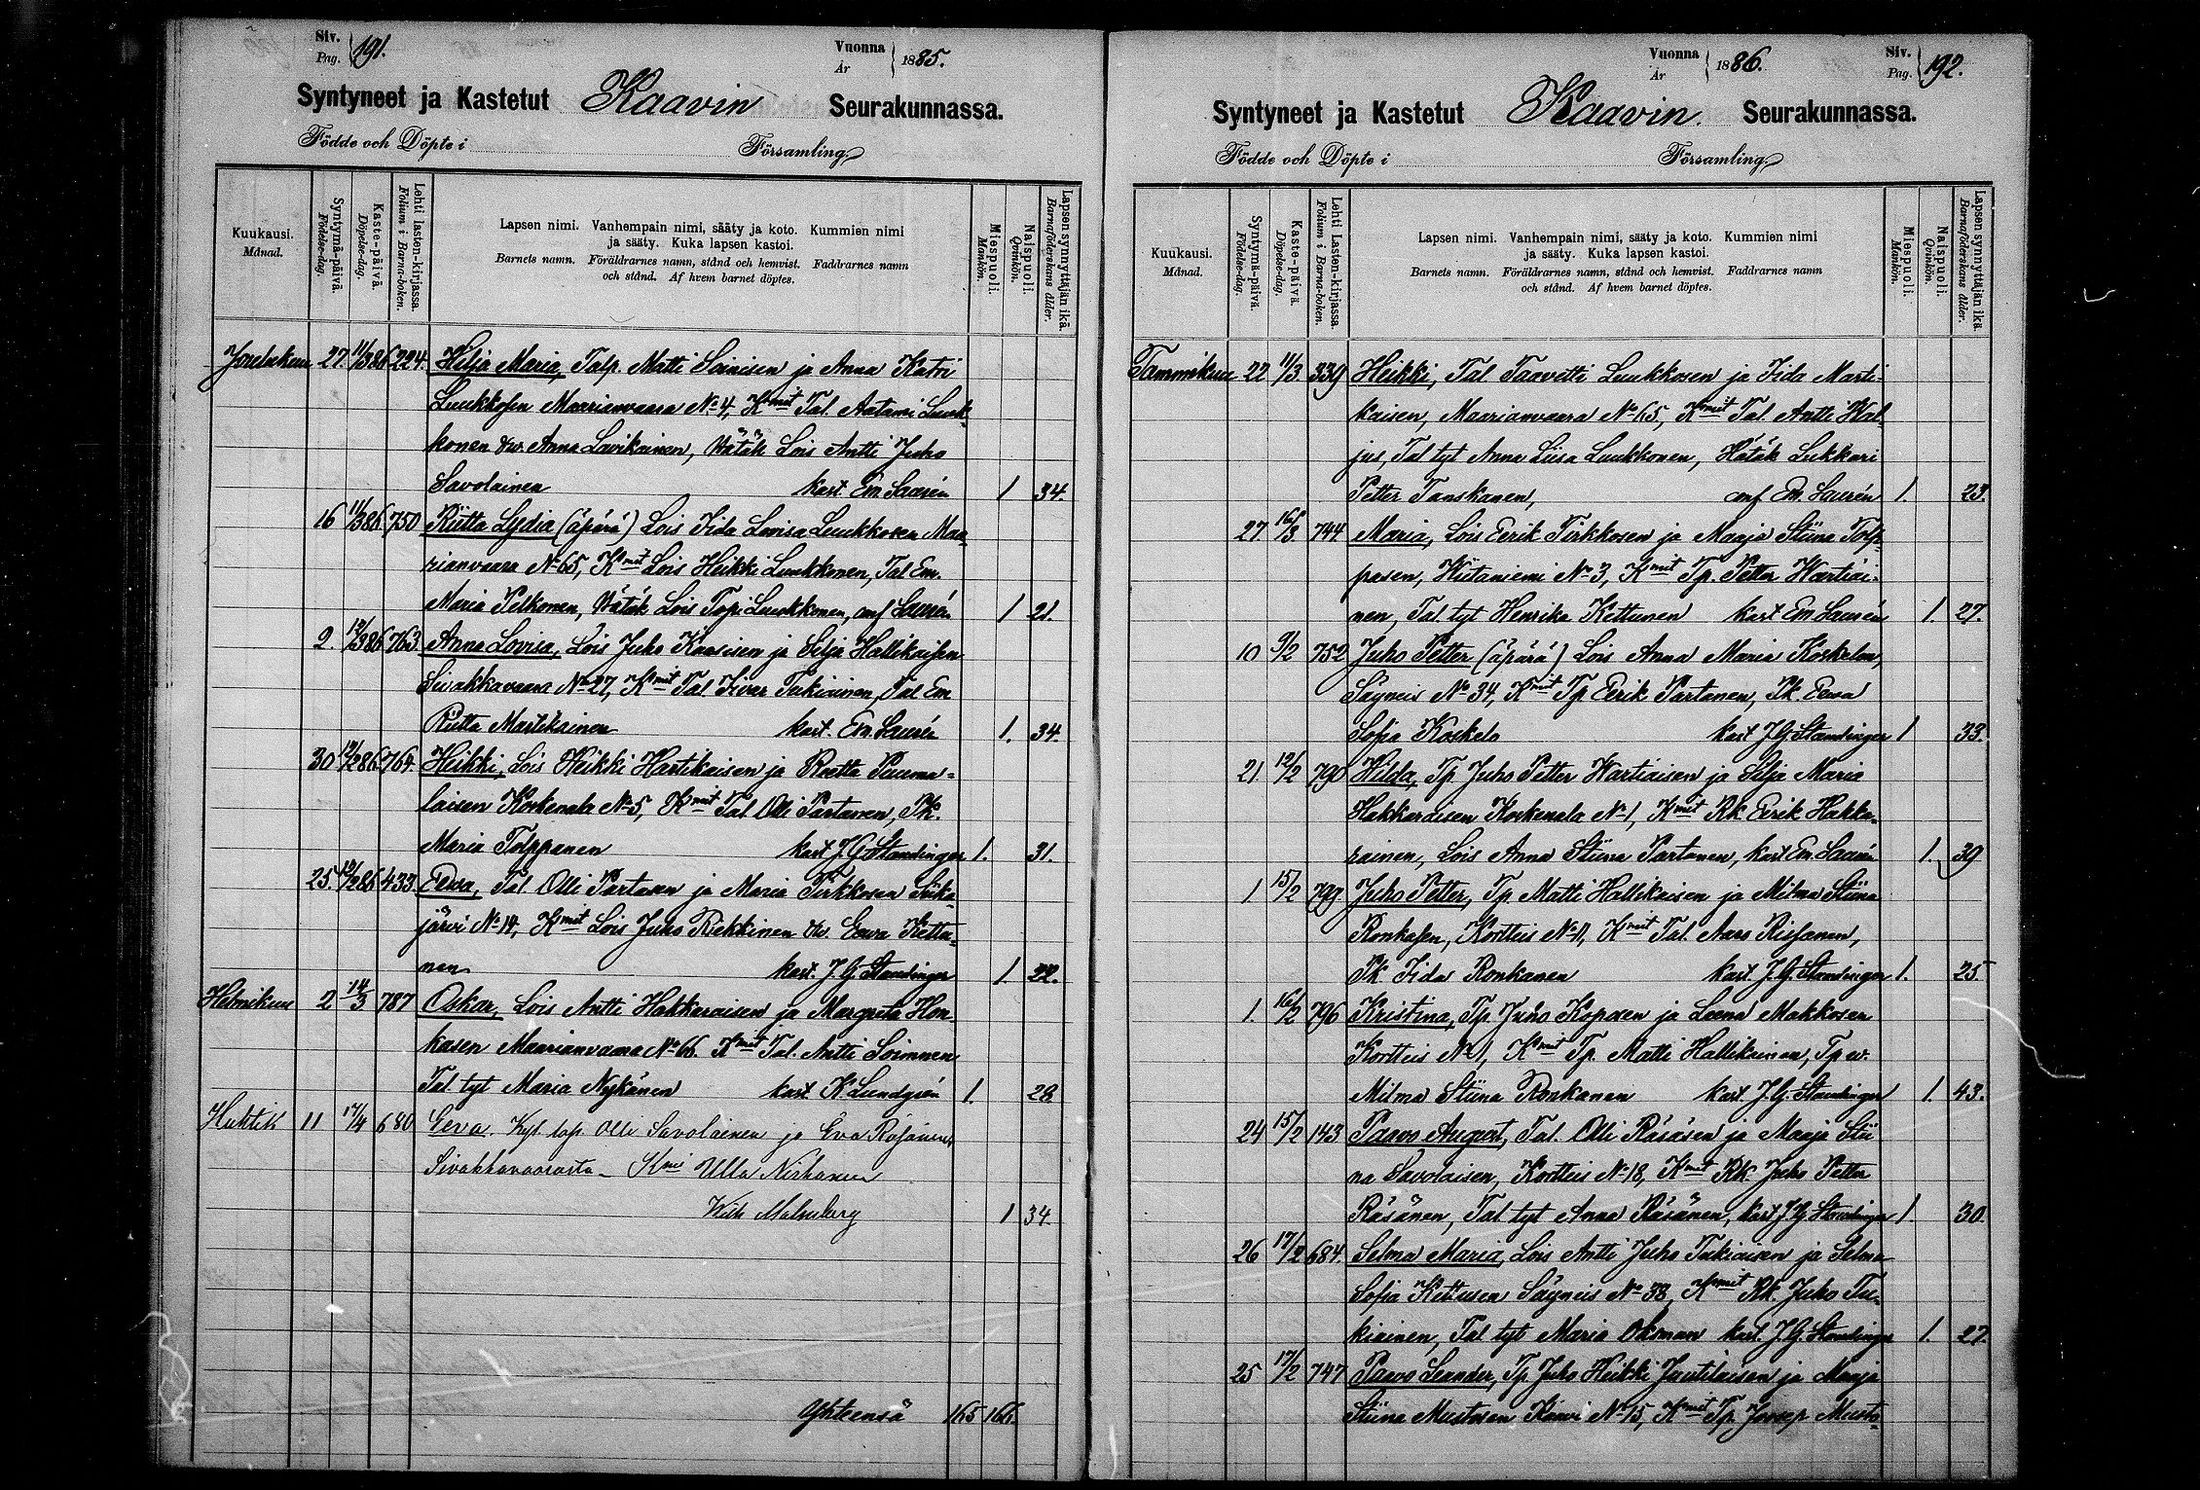 Siv. Pag. 191.
Vuonna År 1885.
Syntyneet ja Kastetut Kaavin Seurakunnassa.
Födde och Döpte i Församling.
Kuukausi. Månad.
Syntymä-päivä. Födelse-dag.
Kaste-päivä. Döpelse-dag.
Lehti lasten-kirjassa. Folium i Barna-boken.
Lapsen nimi. Vanhempain nimi, sääty ja koto. Kummien nimi
ja sääty. Kuka lapsen kastoi.
Barnets namn. Föräldrarnes namn, stånd och hemvist. Faddrarnes namn
och stånd. Af hvem barnet döptes.
Miespuoli. Mankön.
Naispuoli. Qvinkön.
Lapsen synnyttäjän ikä. Barnaföderskans ålder.
Joulukuu 27. 11/3 86 224. Hilja Maria, Talp. Matti Soinisen ja Anna Katri
Luukkosen Maarianvaara No 4, Kmit Tal. Aatami Luuk-
konen & w. Anna Lavikainen, Hätäk Lois Antti Juho
Savolainen kast. Em. Laurén 1 34.
16 11/3 86. 750 Riitta Lydia (äpärä) Lois Iida Lovisa Luukkosen Maa-
rianvaara No 65, Kmit Lois Heikki Luukkonen, Tal Em.
Maria Pelkonen, Hätäk Lois Topi Luukkonen, anf Laurén 1 21.
2. 12/3 86 763. Anna Lovisa, Lois Juho Kaasisen ja Silja Hallikaisen
Sivakkavaara No 27, Kmit Tal Iivar Tukiainen, Tal Em
Riitta Martikainen kast. Em. Laurén 1. 34.
30 12/2 86 764. Heikki, Lois Heikki Hartikaisen ja Reetta Puuma-
laisen Koskenala No 5, Kmit Tal Olli Partanen, Pk.
Maria Tolppanen kast J. G. Standinger 1. 31.
25. 12/2 86 433 Eewa, Tal Olli Partasen ja Maria Pirkkosen Siika-
järvi No 14, Kmit Lois Juho Riekkinen & w. Eewa Kettu-
nen kast. J. G. Standinger 1. 22.
Helmikuu 2 14/3 787 Oskar, Lois Antti Hakkaraisen ja Margreta Hon-
kasen Maarianvaara No 66. Kmit Tal. Antti Soininen
Tal. tyt Maria Nykänen kast K. Lundgrén 1. 28
Huhtik 11 17/4 680 Eeva. Kyl. lap. Olli Savolainen ja Eva Räsänen,
Sivakkavaarasta Kmi Ulla Nirhanen
Wilh Malmberg 1 34.
Yhteensä 165 166.
Siv. Pag. 192.
Vuonna År 1886.
Syntyneet ja Kastetut Kaavin. Seurakunnassa.
Födde och Döpte i Församling.
Kuukausi. Månad.
Syntymä-päivä. Födelse-dag.
Kaste-päivä. Döpelse-dag.
Lehti Lasten-kirjassa. Folium i Barna-boken.
Lapsen nimi. Vanhempain nimi, sääty ja koto. Kummien nimi
ja sääty. Kuka lapsen kastoi.
Barnets namn. Föräldrarnes namn, stånd och hemvist. Faddrarnes namn
och stånd. Af hvem barnet döptes.
Miespuoli. Mankön.
Naispuoli. Qvinkön.
Lapsen synnyttäjän ikä. Barnaföderskans ålder.
Tammikuu 22 11/3 339 Heikki, Tal Taavetti Luukkosen ja Iida Marti-
kaisen, Maarianvaara No 65, Kmit Tal. Antti Hal-
jus, Tal tyt Anna Liisa Luukkonen, Hätäk Lukkari
Petter Tanskanen, anf Em. Laurén 1. 23.
27 16/3 744 Maria, Lois Eerik Pirkkosen ja Maaja Stiina Tolp-
pasen, Hiitaniemi No 3, Kmit Tp. Petter Wartiai-
nen, Tal. tyt Henrika Kettunen kast Em Laurén 1. 27.
10 9/2 752 Juho Petter (äpärä) Lois Anna Maria Koskelon,
Säyneis No 34, Kmit Tp Eerik Partanen, Pk. Eewa
Sofia Koskelo kast J. G. Standinger 1 33.
21 12/2 790 Hilda, Tp Juho Petter Wartiaisen ja Silja Maria
Hakkaraisen Koskenala No 1, Kmit Rk Eerik Hakka-
rainen, Lois Anna Stiina Partanen, kast Em Laurén 1. 39
1 15/2 799. Juho Petter, Tp Matti Hallikaisen ja Milma Stiina
Ronkasen, Kortteis No 11, Kmit Tal. Aaro Rissanen,
Pk Iida Ronkanen kast. J. G. Standinger 1. 25
1. 16/2 796 Kristina, Tp. Juho Koposen ja Leena Makkosen
Kortteis No 1, Kmit Tp. Matti Hallikainen, Tp w.
Milma Stiina Ronkanen kast J. G. Standinger 1. 43.
24 15/2 143 Paavo August, Tal. Olli Räsäsen ja Maaja Stii
na Savolaisen, Kortteis No 18, Kmit Rk. Juho Petter
Räsänen, Tal tyt Anna Räsänen, kast J. G. Standinger 1. 30
26 17/2 684. Selma Maria, Lois Antti Juho Tukiaisen ja Selma
Sofia Kettusen Säyneis No 38, Kmit Rk. Juho Tu-
kiainen, Tal tyt Maria Oksman kast. J. G. Standinger 1. 27.
25 17/2 747 Paavo Leander, Tp Juho Heikki Jantilaisen ja Maaja
Stiina Mustosen Kaavi No 15, Kmit Tp Joosep Musto-